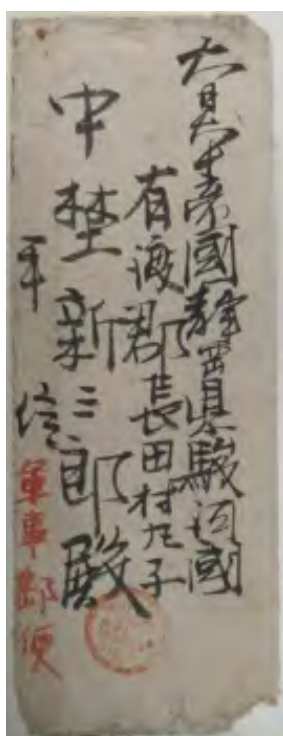 大日本帝國静岡県駿河國
有渡郡長田村丸子
中埜新三郎殿
平信
軍事郵便